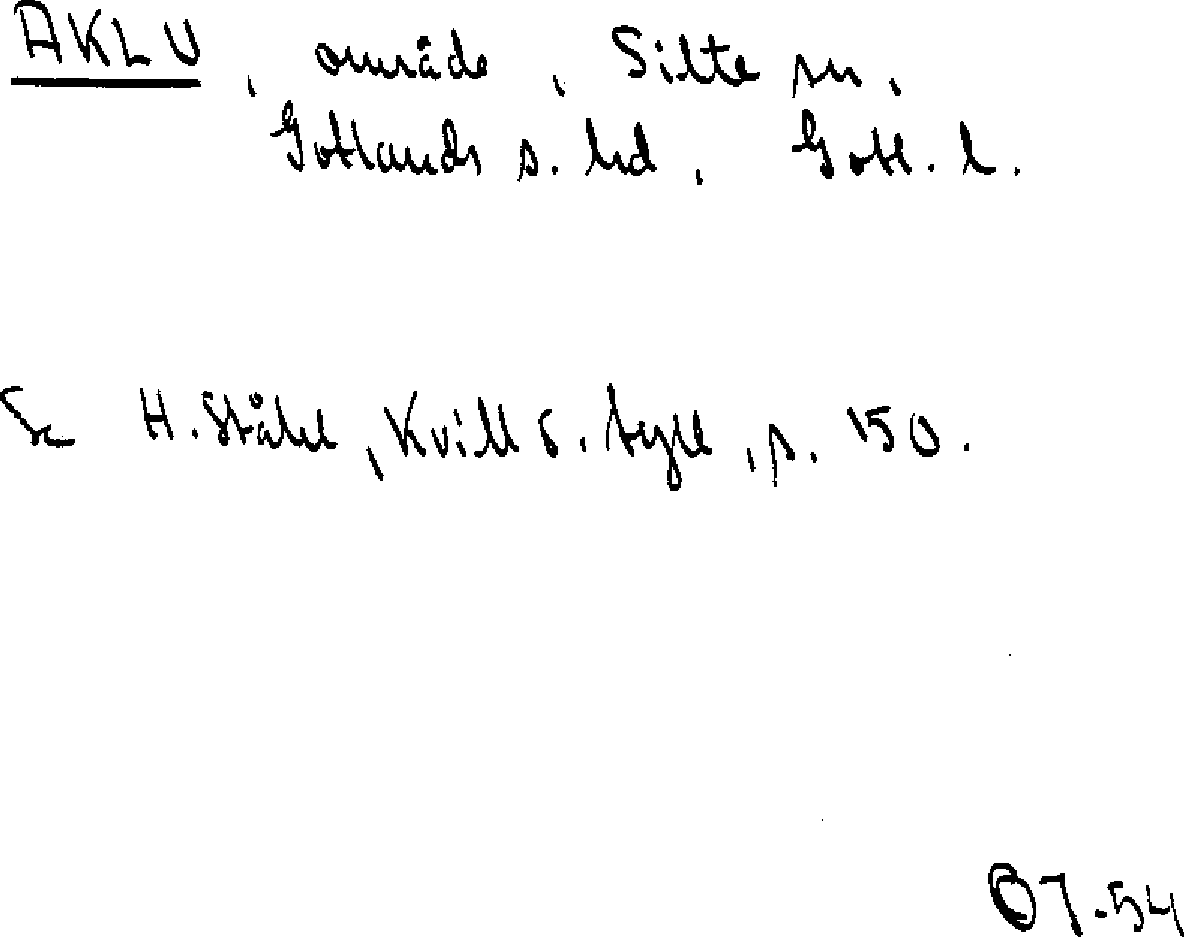 AKLU, område, Silte sn,
Gotlands s. hd, Gotl. l.
Se H. Ståhl, Kvill o. tyll, s. 150.